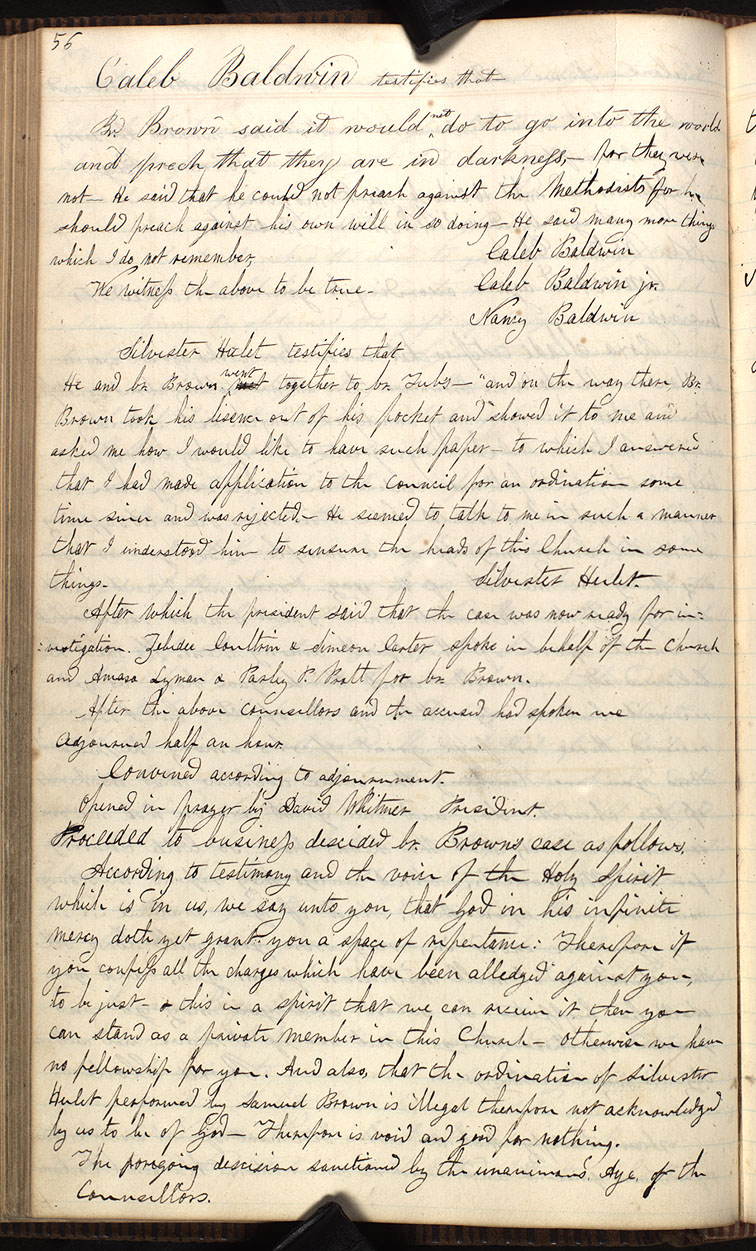 56
Caleb Baldwin testifies that—
Br. Brown said it would not do to go into the world
and preach that they are in darkness,— for they were
not— He said that he could not preach against the Methodists for he
should preach against his own will in so doing— He said many more things
which I do not remember. Caleb Baldwin
We witness the above to be true— Caleb Baldwin jr.
Nancy Baldwin
Silvester Hulet testifies that
He and br. Brown went together to br. Tubs— "and on the way there Br.
Brown took his lisence out of his pocket and showed it to me and
asked me how I would like to have such paper— to which I answered
that I had made application to the council for an ordination some
time since and was rejected— He seemed to talk to me in such a manner
that I understood him to sensure the heads of this Church in some
things— Silvester Hulet.
After which the president said that the case was now ready for in=
=vestigation. Zebedee Coultrin & Simeon Carter spoke in behalf of the church
and Amasa Lyman & Parley P. Pratt for br. Brown.
After the above counsellors and the accused had spoken we
adjourned half an hour.
Convened according to adjournment.
Opened in prayer by David Whitmer President.
Proceeded to business decided br. Browns case as follows.
According to testimony and the voice of the Holy Spirit
which is in us, we say unto you, that God in his infinite
mercy doth yet grant you a space of repentance: Therefore if
you confess all the charges which have been alledged against you,
to be just— & this in a spirit that we can receive it then you
can stand as a private member in this Church— otherwise we have
no fellowship for you. And also, that the ordination of Silvester
Hulet performed by Samuel Brown is illegal therefore not acknowledged
by us to be of God— Therefore is void and good for nothing.
The foregoing descision sanctioned by the unanimous Aye, of the
Councellors.